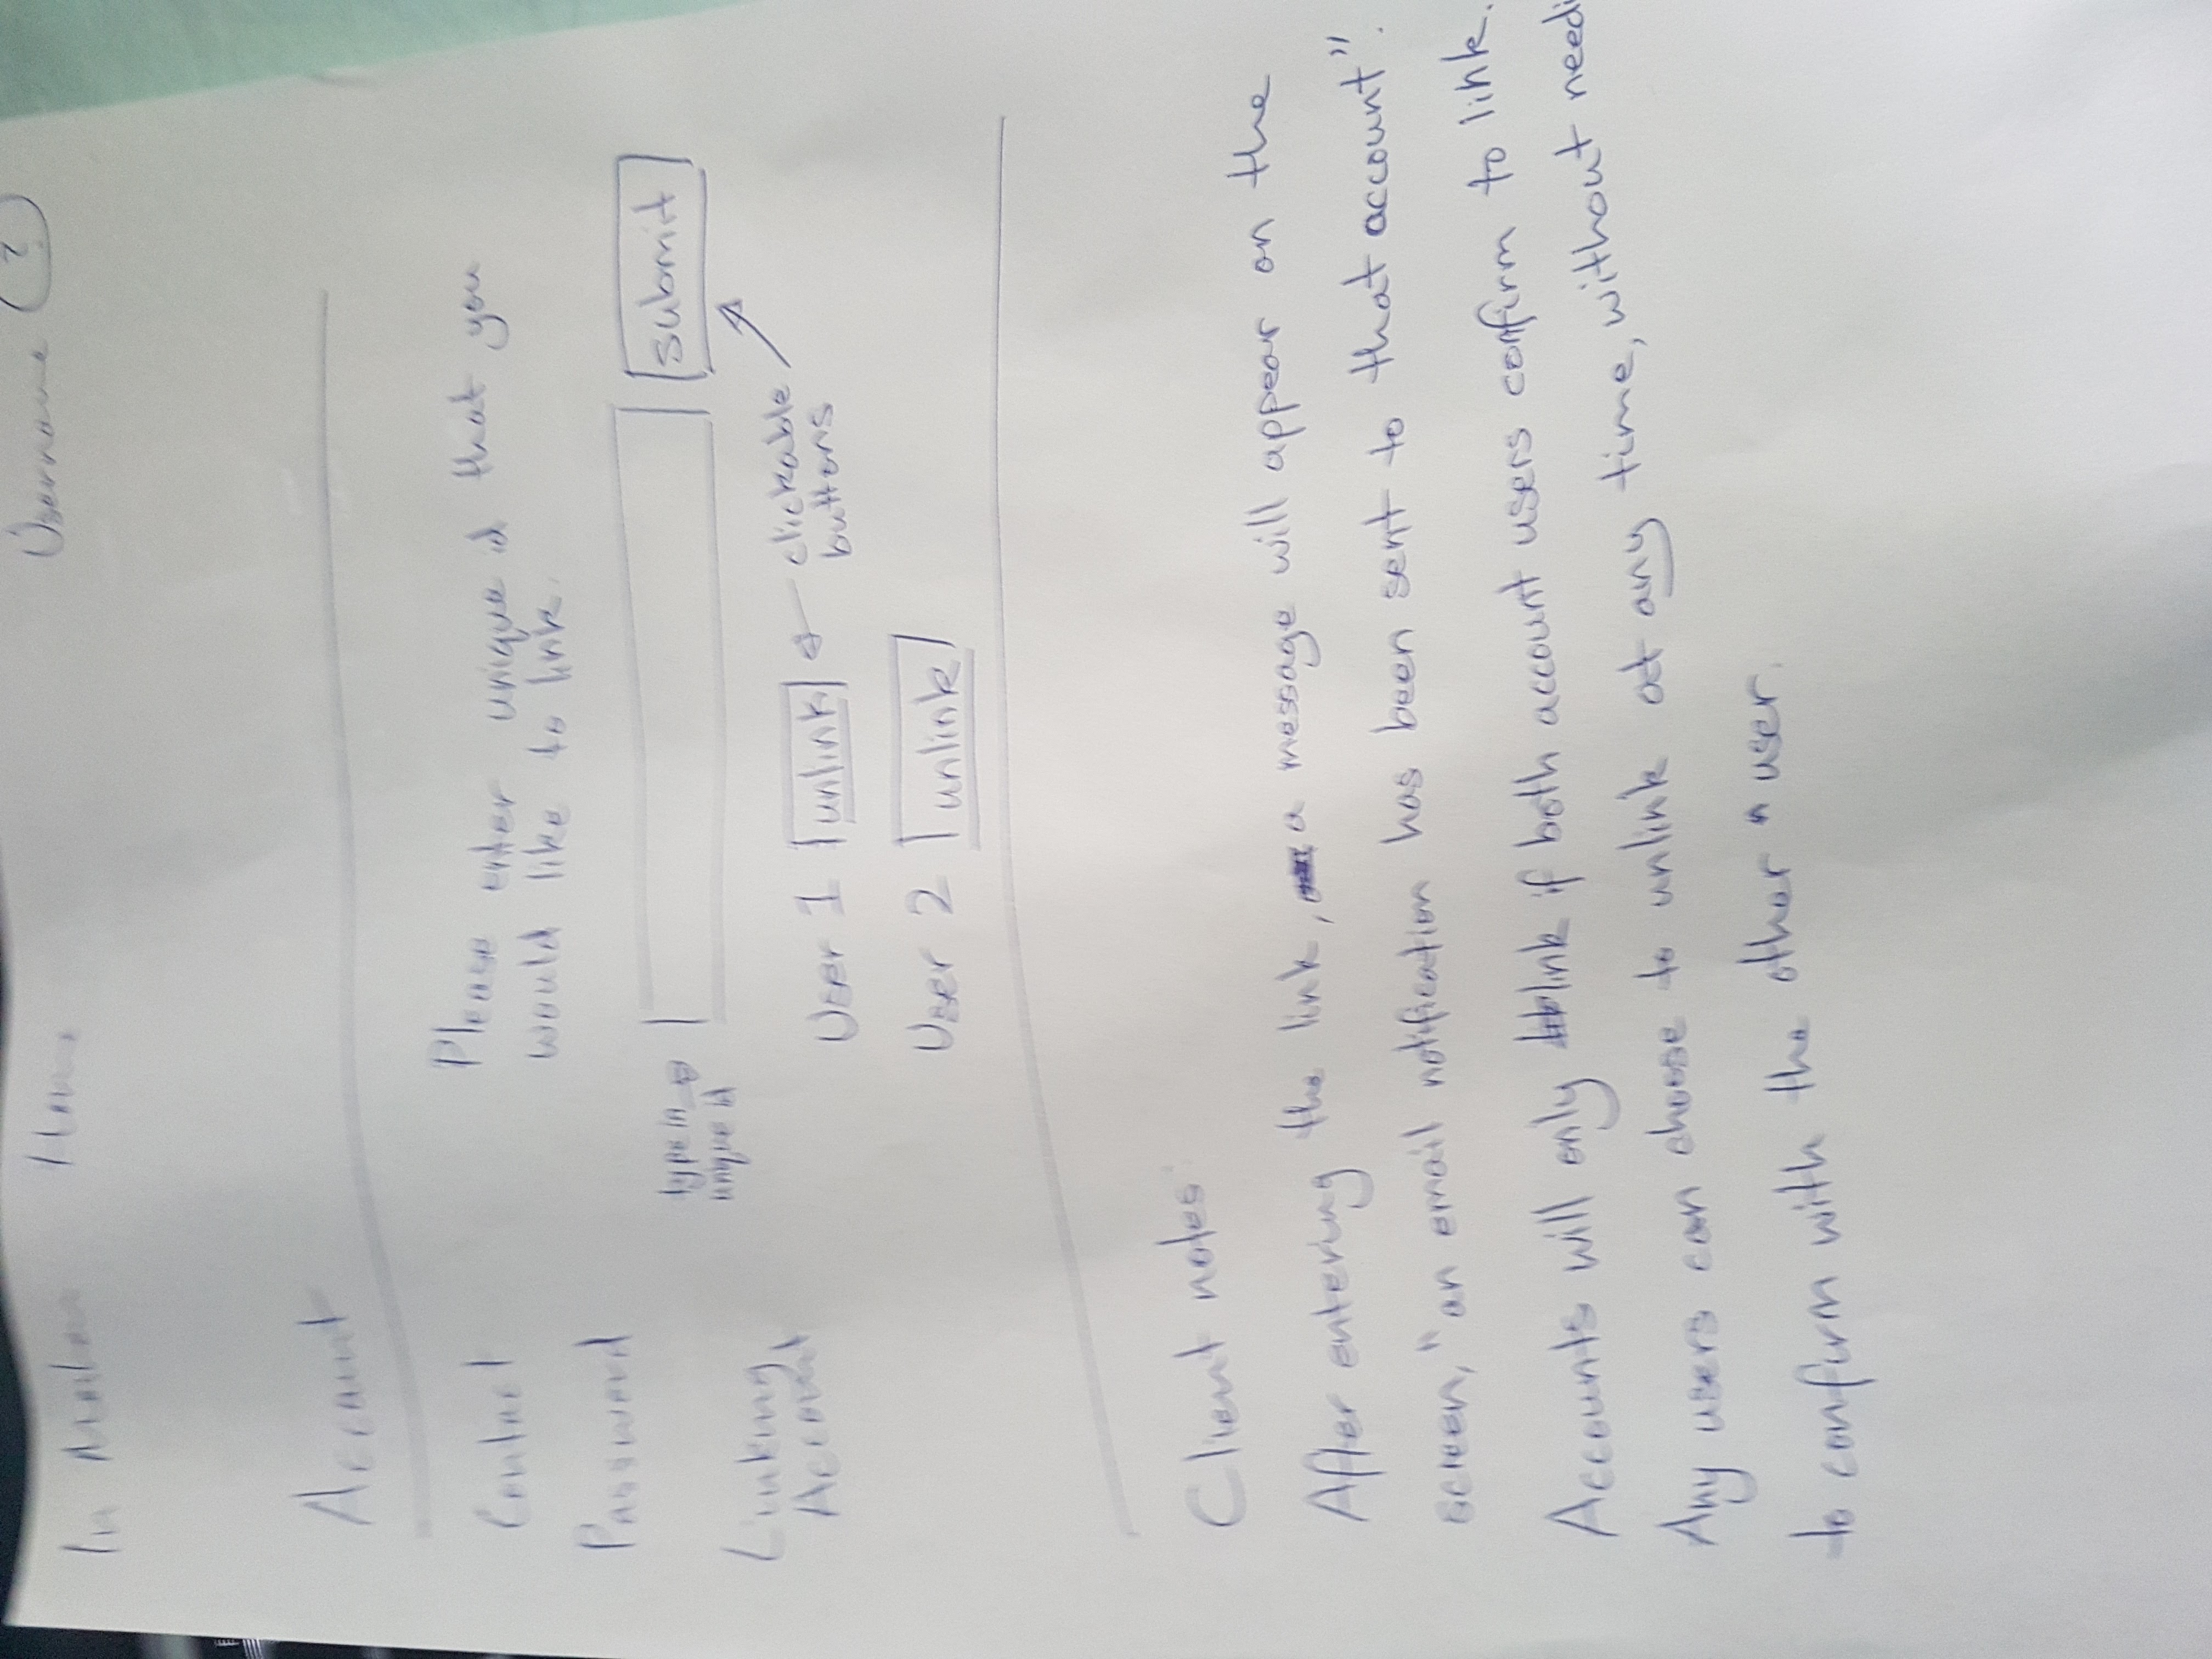 In Home Username ?
Account
Contact
Please enter unique id that you
would like to link.
Password
type in
unique id
submit
Linking
Account
User 1 unlink
clickable
buttons
User 2 unlink
Client notes:
After entering the link, a message will appear on the
screen, "an email notification has been sent to that account".
Accounts will only link if both account users confirm to link.
Any users can choose to unlink at any time, without needi
to confirm with the other user.